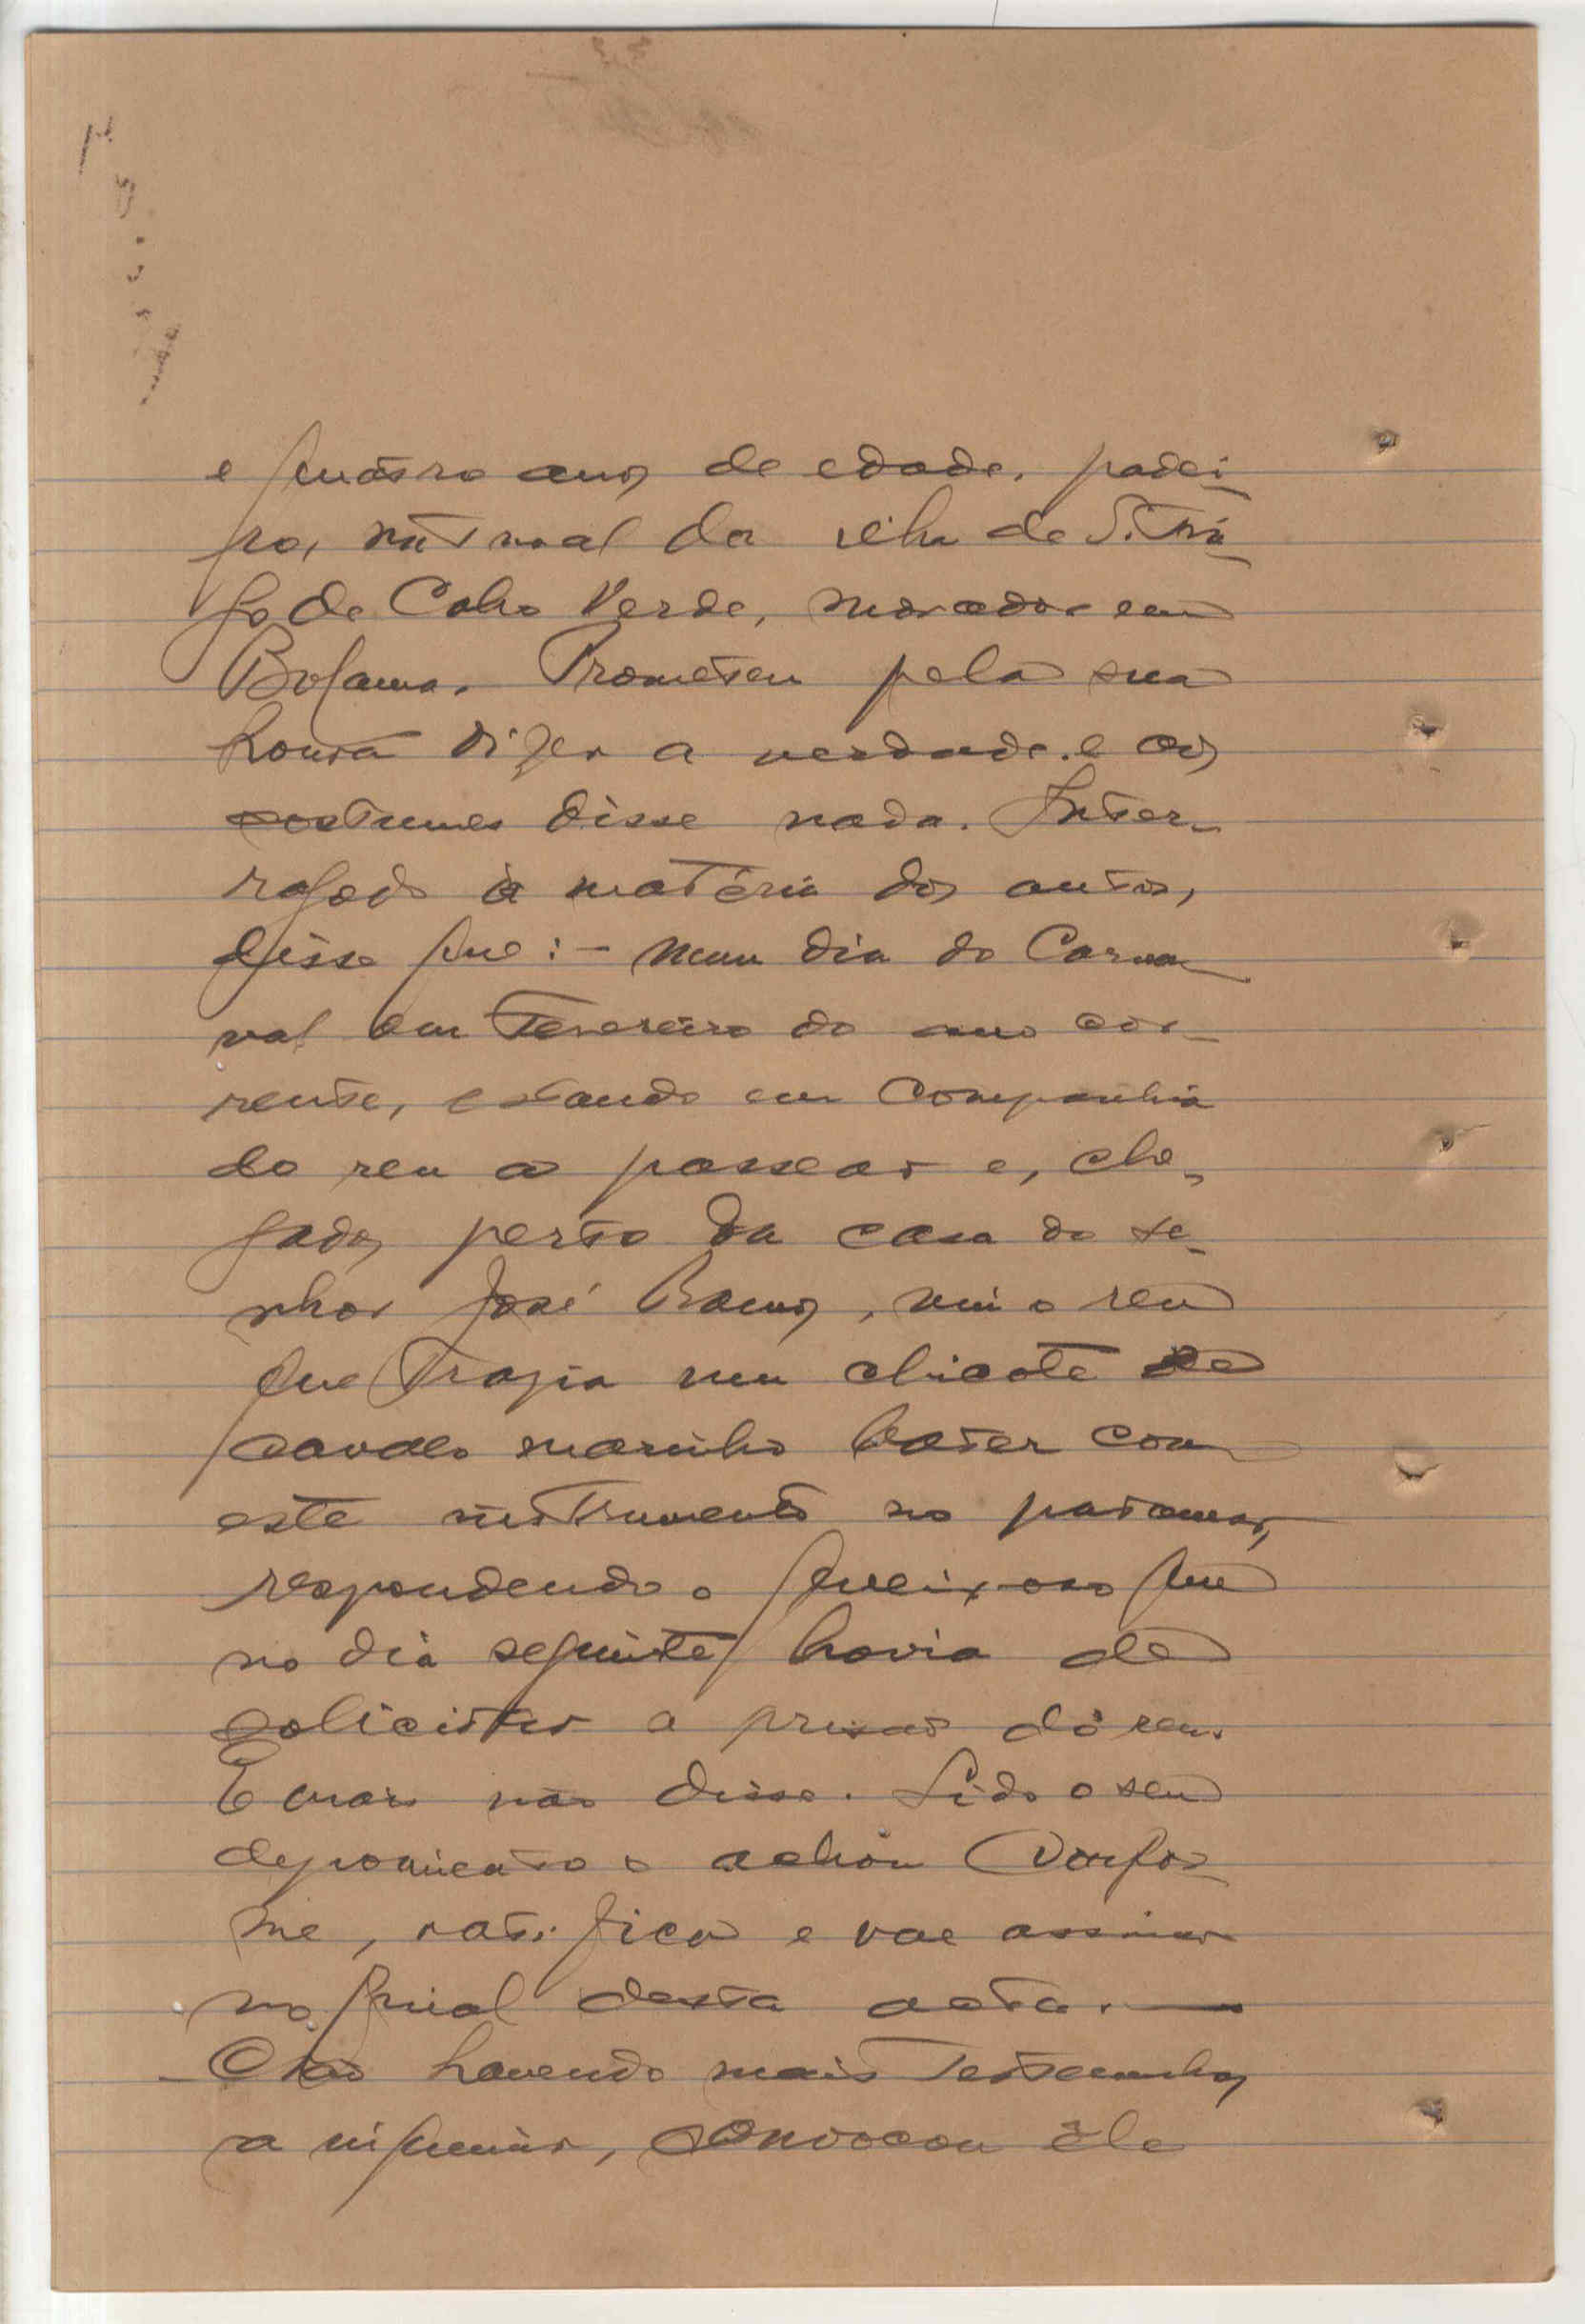 e quatro anos de edade, padei-
ro, natural da ilha de S. Tiá-
go de Cabo Verde, morador em
Bolama. Prometeu pela sua
honra dizer a verdade e aos
costumes disse nada. Inter-
rogado à matéria dos autos,
disse que:- Num dia do Carna-
val em Fevereiro do ano cor-
rente, estando em companhia
do reu a passear e, che-
gados perto da casa do se-
nhor José Ramos, viu o reu
que trazia um chicote de
cavalo marinho bater com
este instrumento no patamar,
respondendo o queixoso que
no dia seguinte havia de
solicitar a prisão do reu.
E mais não disse. Lido o seu
depoimento o achou confor-
me, ratifica e vae assinar
no final desta acta.—
Não havendo mais testemunhas
a inquirir, convocou êle